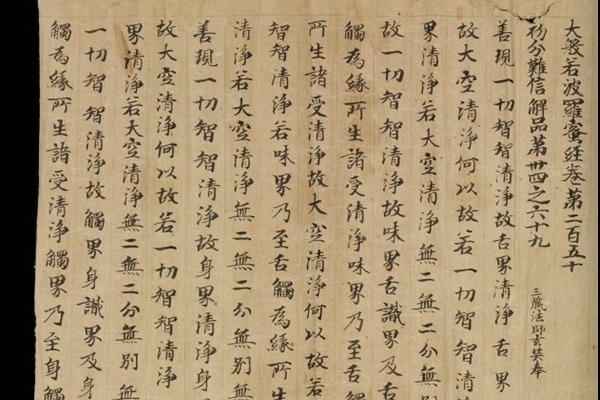 大般若波羅蜜經卷第二百五十
初分難信解品第卅四之六十九 三藏法師玄奘奉
善現一切智智清淨故舌界清淨舌界
故大空清淨何以故若一切智智清淨
界清淨若大空清淨無二無二分無別
故一切智智清淨故味界舌識界及舌
觸為緣所生諸受清淨味界乃至舌觸
所生諸受清淨故大空清淨何以故若
智智清淨若味界乃至舌觸為緣所生
清淨若大空清淨無二無二分無別無
善現一切智智清淨故身界清淨身
故大空清淨何以故若一切智智清淨
界清淨若大空清淨無二無二分無別無
一切智智清淨故觸界身識界及身
觸為緣所生諸受清淨觸界乃至身觸